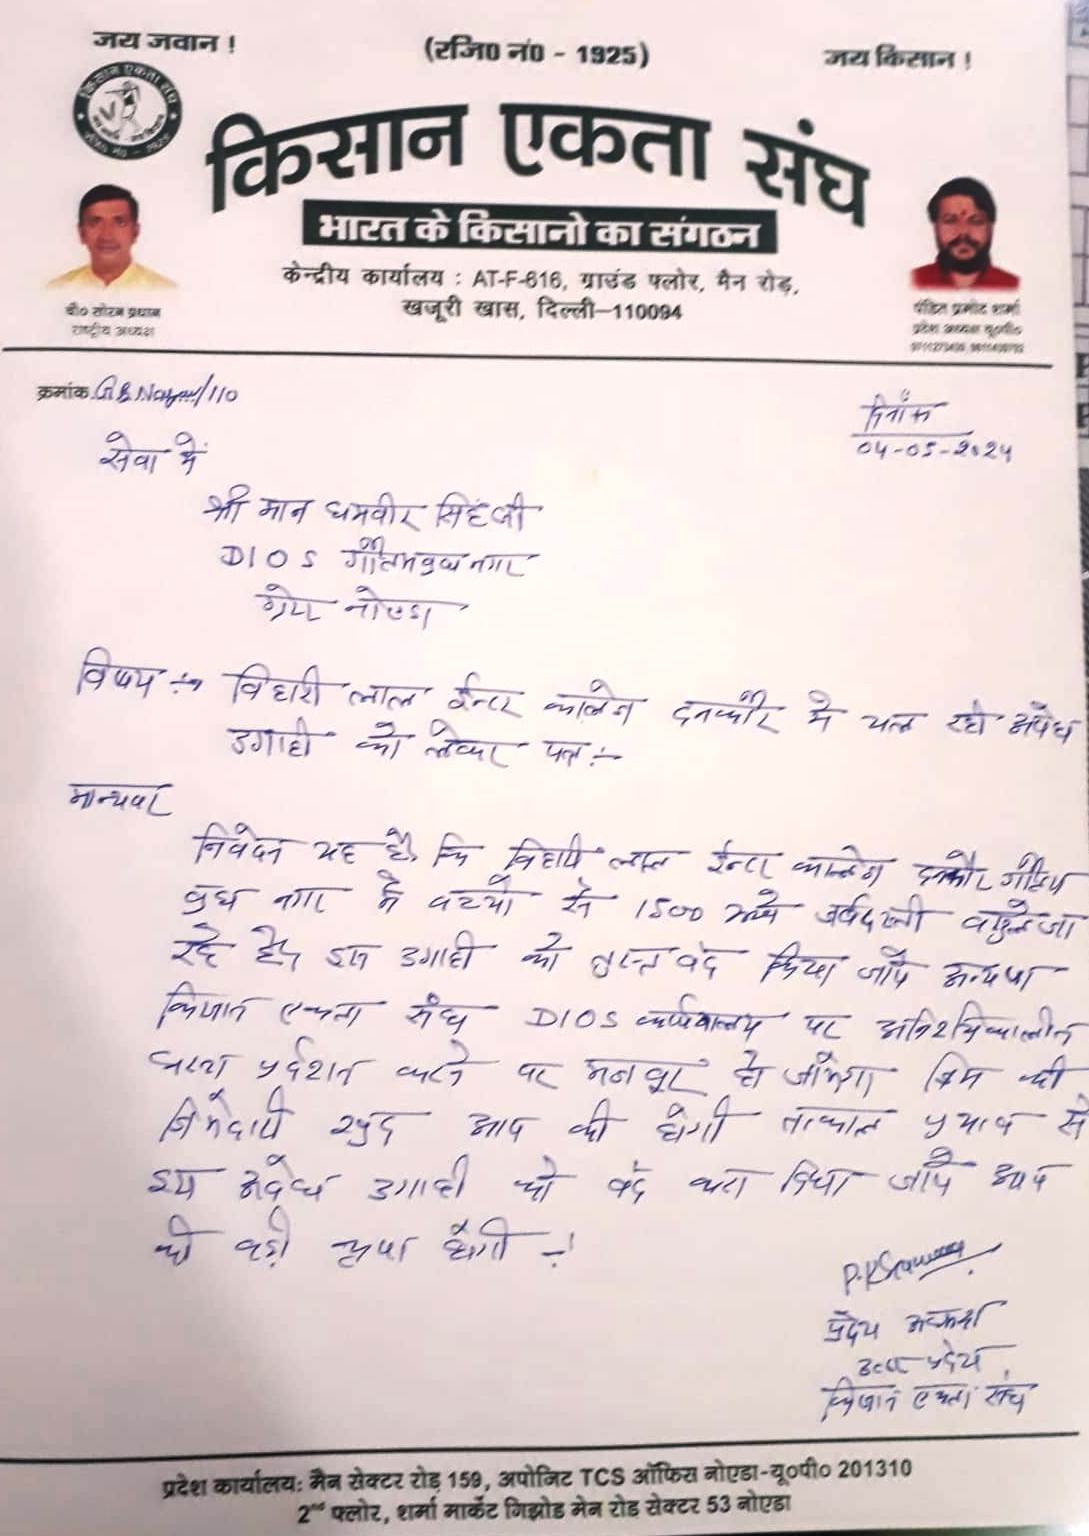 जय जवान !
(रजि0 नं0 - 1925)
जय किसान !
किसान एकता संघ
भारत के किसानो का संगठन
केन्द्रीय कार्यालय : AT-F-616, ग्राउंड फ्लोर, मैन रोड़,
खजूरी खास, दिल्ली–110094
चौ० सोरन प्रधान
राष्ट्रीय अध्यक्ष
पंडित प्रमोद शर्मा
प्रदेश अध्यक्ष यू०पी०
क्रमांक G.B.Nagar/110
दिनाँक
04-05-2024
सेवा में
श्री मान धमवीर सिंह जी
DIOS गौतमबुध नगर
ग्रेटर नोएडा
विषय :→ विहारी लाल ईन्टर कालेज दनकौर मे चल रही अवैध
उगाही को लेकर पत्र :-
मान्यवर
निवेदन यह है कि विहारी लाल ईन्टर कालेज दनकौर गौतम
बुध नगर मे बच्चो से 1500 रूपये जर्बदस्ती वसूले जा
रहे है इस उगाही को तुरन्त बंद किया जाये अन्यथा
किसान एकता संघ DIOS कार्यालय पर अनिश्चिकालीन
धरना प्रर्दशन करने पर मजबूर हो जायेगा जिस की
जिमेदारी खुद आप की होगी तत्काल प्रभाव से
इस अवैध उगाही को बंद करा दिया जाये आप
की बड़ी कृपा होगी -!
P.K Sharma
प्रदेश अध्यक्ष
उत्तर प्रदेश
किसान एकता संघ
प्रदेश कार्यालय: मैन सेक्टर रोड़ 159, अपोजिट TCS ऑफिस नोएडा-यू०पी० 201310
2nd फ्लोर, शर्मा मार्केट गिझोड मेन रोड सेक्टर 53 नोएडा